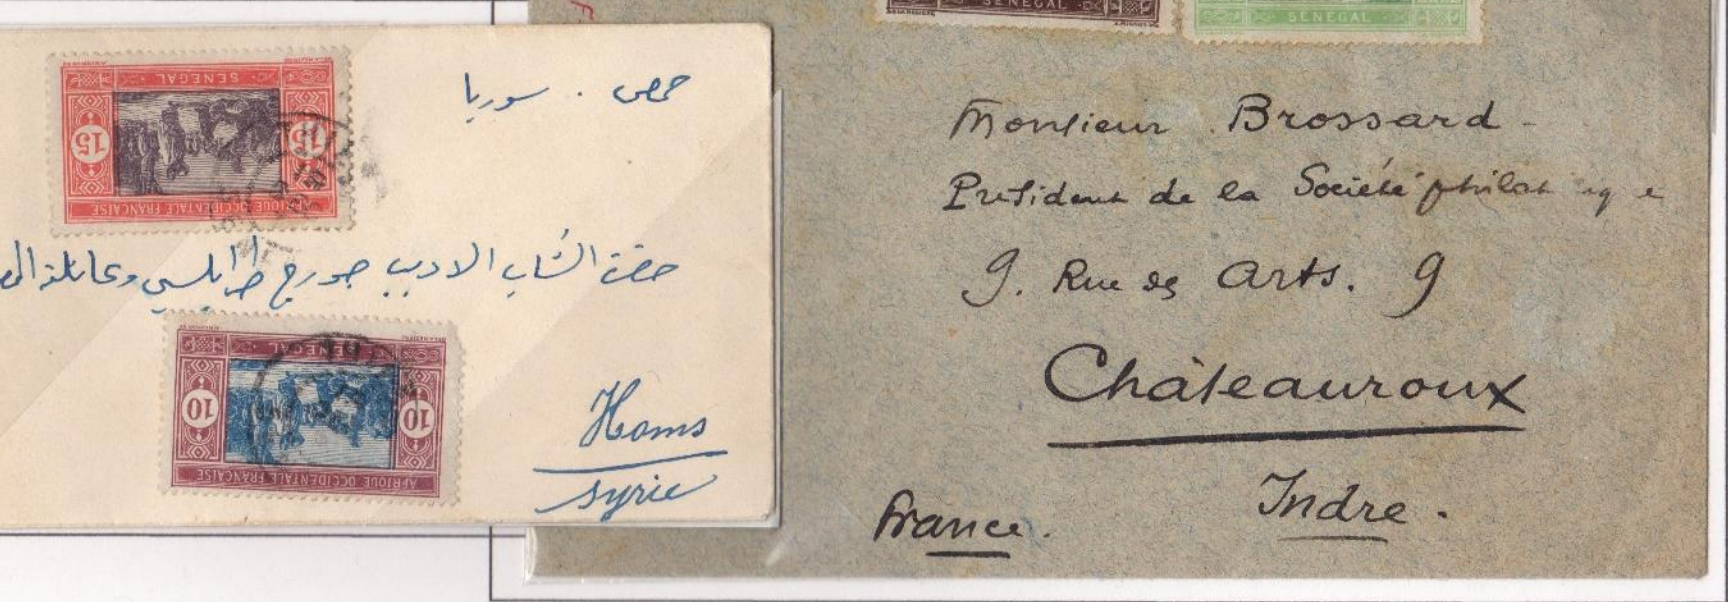 SENEGAL
15 15
AFRIQUE OCCIDENTALE FRANÇAISE
حمص . سوريا
حضرة الشاب الاديب جورج طرابلسي وعائلته
SENEGAL
10 10
AFRIQUE OCCIDENTALE FRANÇAISE
Homs
Syrie
SENEGAL
SENEGAL
Monsieur Brossard -
President de la Société philatélique
9. Rue des Arts. 9
Châteauroux
Indre.
France.